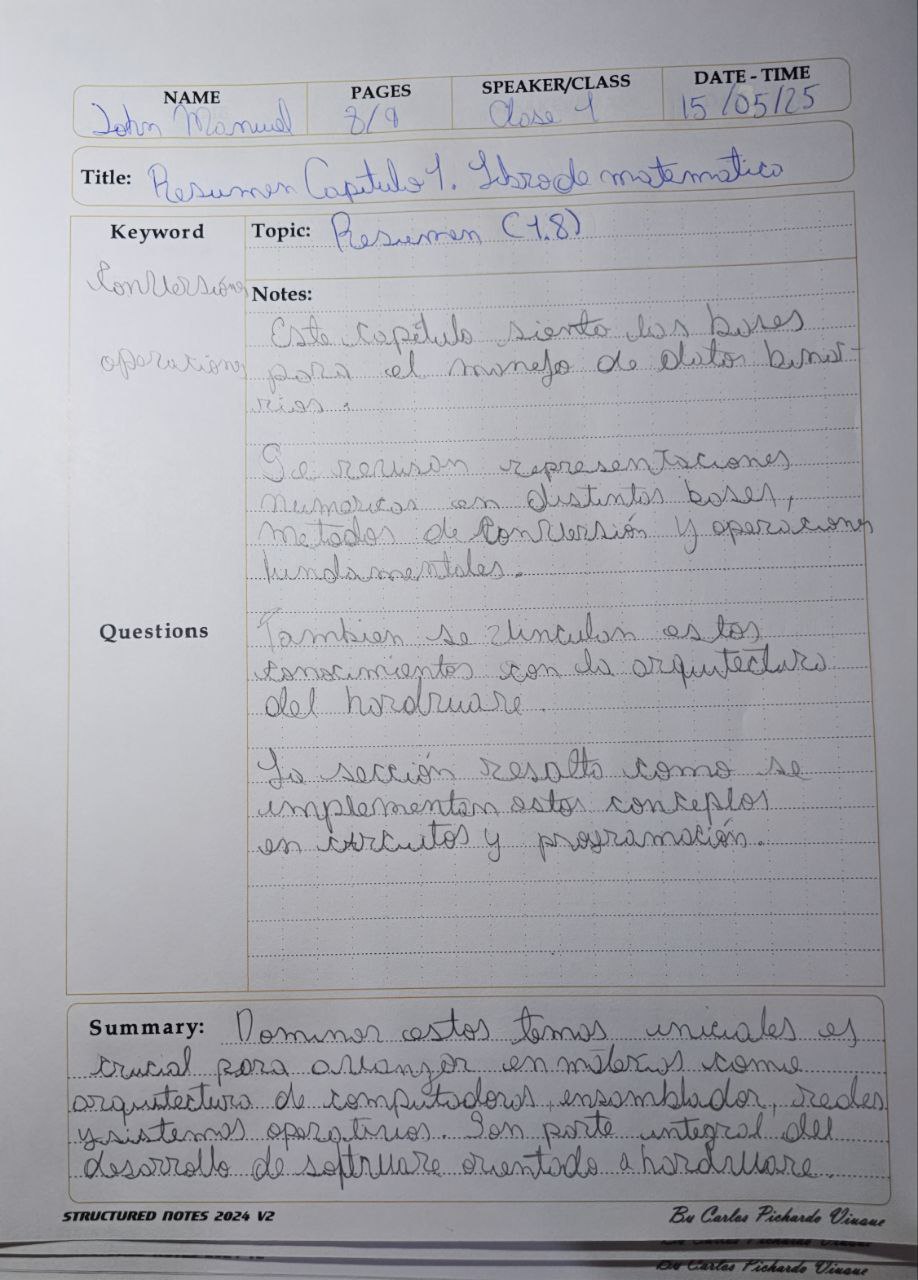 NAME PAGES SPEAKER/CLASS DATE - TIME
John Manuel 8/9 Clase 1 15/05/25
Title: Resumen Capitulo 1. Libro de matematica
Keyword
Conversiones
operaciones
Topic: Resumen (1.8)
Notes:
Este capítulo sienta las bases
para el manejo de datos bina-
rios.
Se revisan representaciones
numericas en distintas bases,
metodos de conversión y operaciones
fundamentales.
Questions
Tambien se vinculan estos
conocimientos con la arquitectura
del hardware.
La sección resalta como se
implementan estos conceptos
en circuitos y programación.
Summary: Dominar estos temas iniciales es
crucial para avanzar en materias como
arquitectura de computadoras, ensamblador, redes
y sistemas operativos. Son parte integral del
desarrollo de software orientado a hardware.
STRUCTURED NOTES 2024 V2 By Carlos Pichardo Viuque
By Carlos Pichardo Viuque